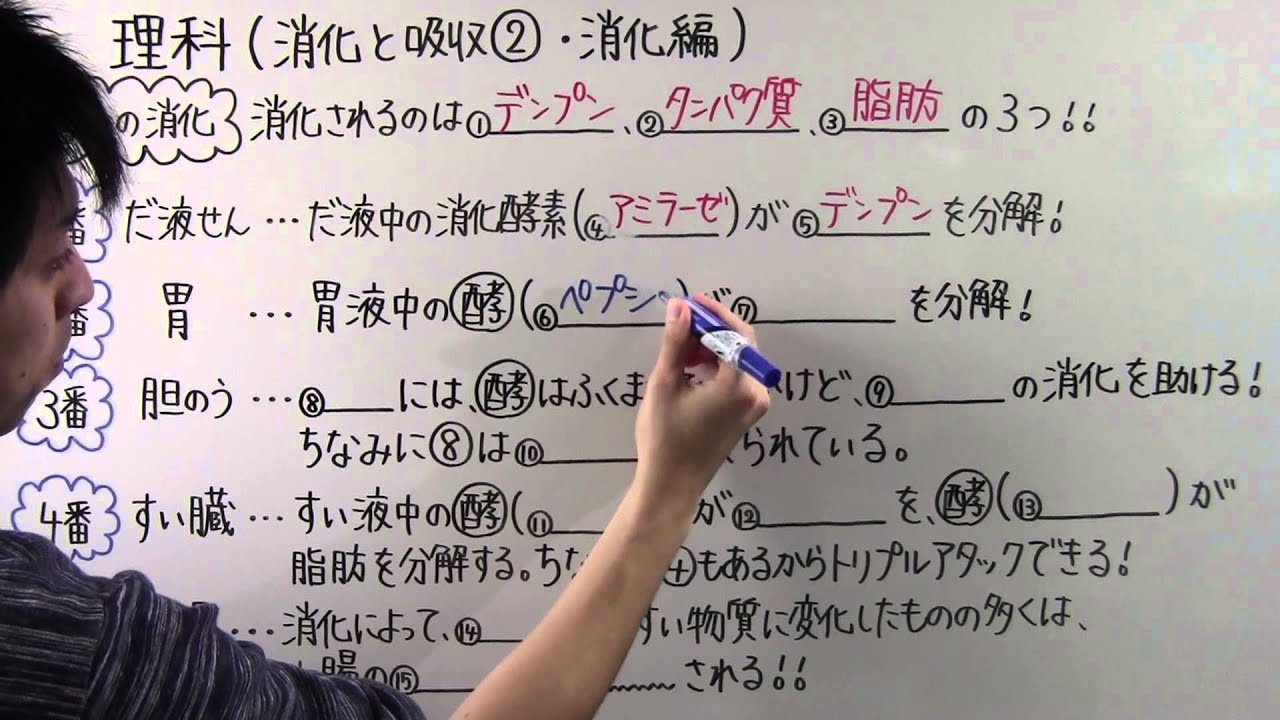 理科(消化と吸収②・消化編)
の消化 消化されるのは①デンプン、②タンパク質、③脂肪の3つ!!
番 だ液せん…だ液中の消化酵素(④アミラーゼ)が⑤デンプンを分解!
番 胃…胃液中の酵(⑥ペプシンが⑦____を分解!
3番 胆のう…⑧____には、酵はふくま けど、⑨____の消化を助ける!
ちなみに⑧は⑩____られている。
4番 すい臓…すい液中の酵(⑪____が⑫____を、酵(⑬____)が
脂肪を分解する。ちな もあるからトリプルアタックできる!
…消化によって、⑭____すい物質に変化したものの多くは、
腸の⑮____される!!